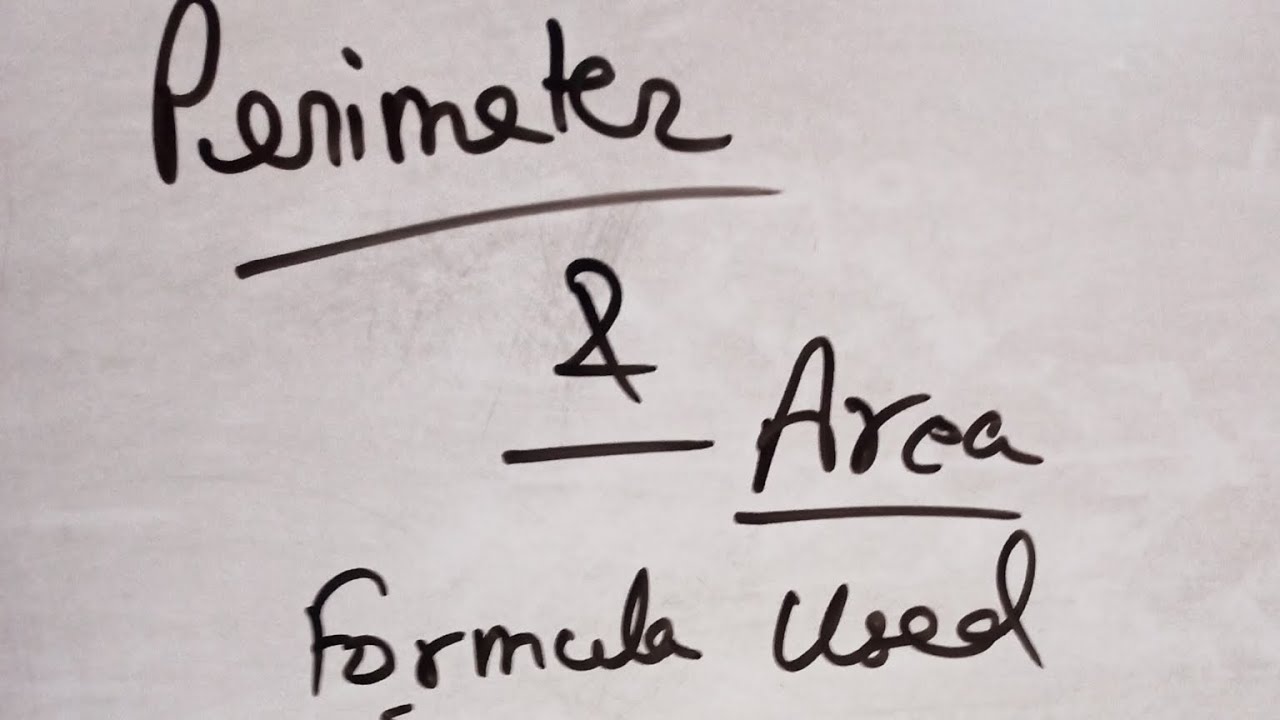 Perimeter
&
Area
Formula Used